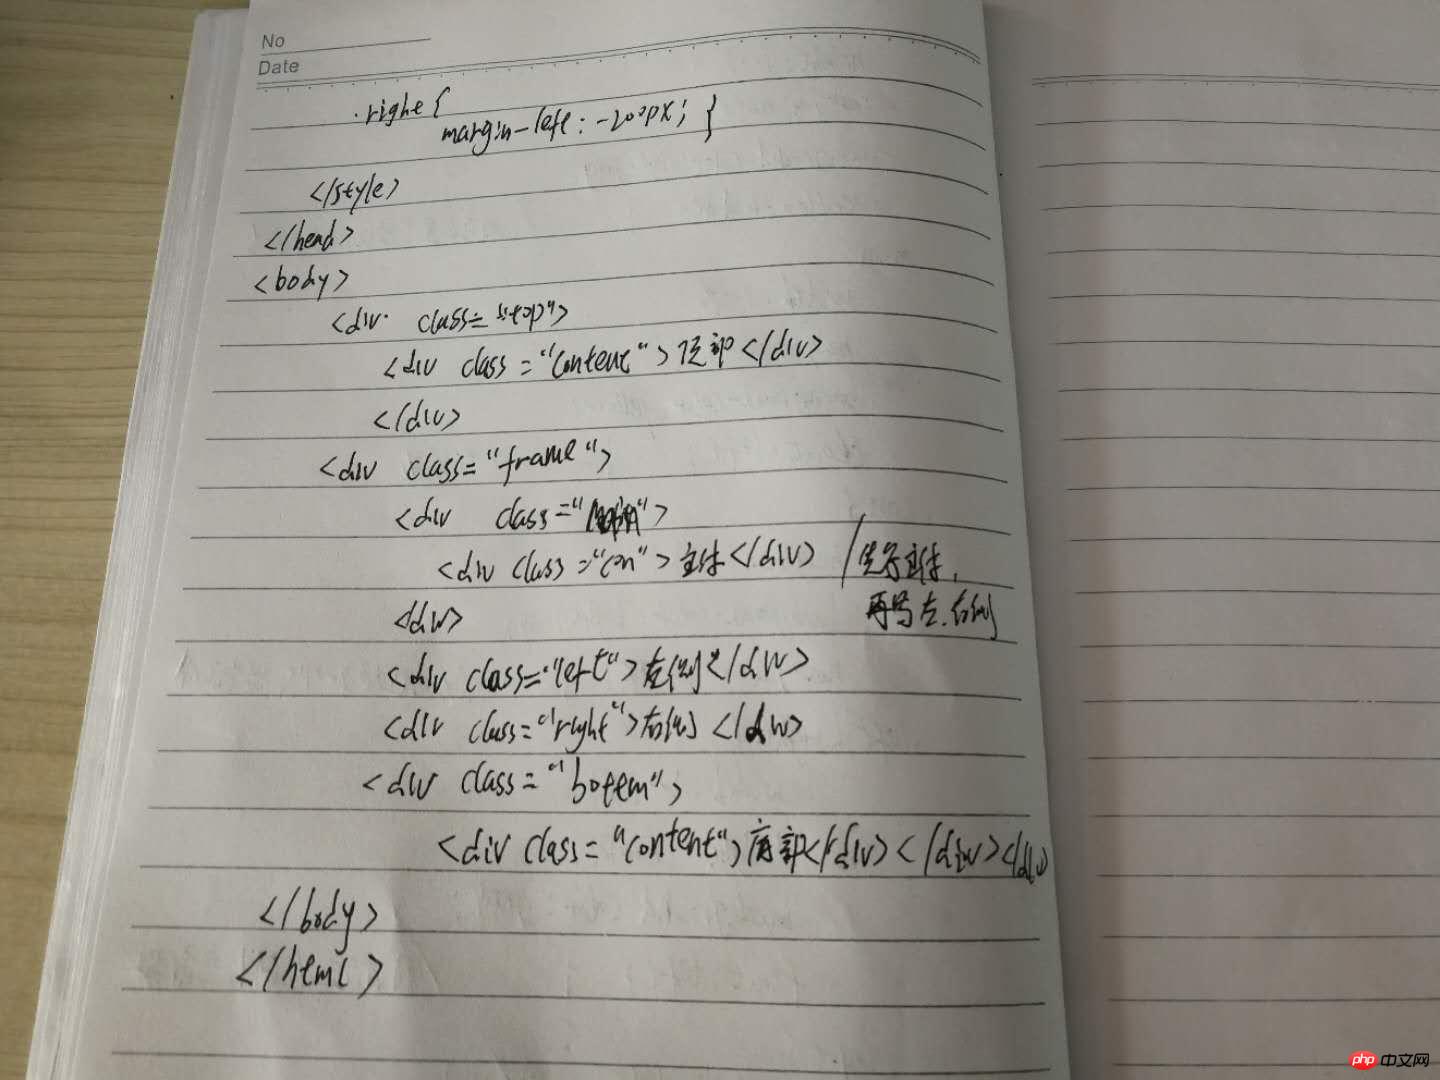 No
Date
.right{
margin-left: -200px; }
</style>
</head>
<body>
<div class="top">
<div class="content">顶部</div>
</div>
<div class="frame">
<div class="main">
<div class="con">主体</div> /先写主体,
再写左.右侧
<div>
<div class="left">左侧</div>
<div class="right">右侧</div>
<div class="bottem">
<div class="content">底部</div></div></div>
</body>
</html>
php 中文网